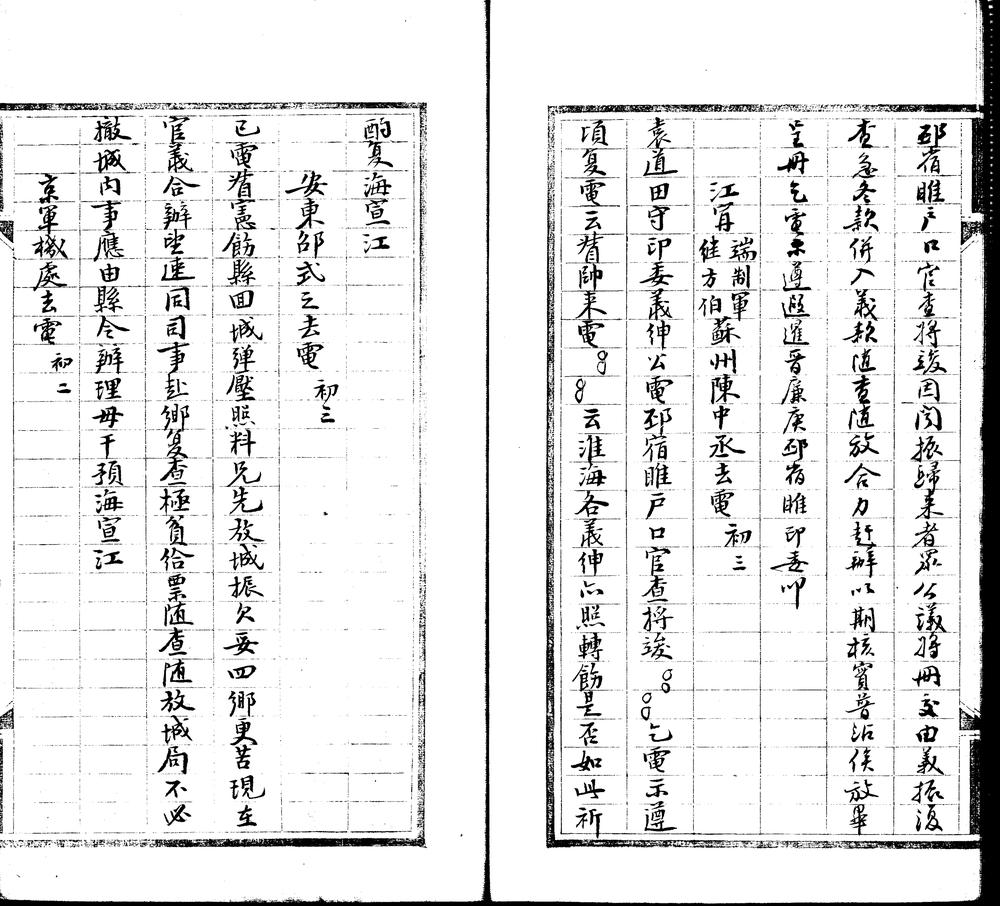 邳宿睢戶口官查將竣因聞振歸來者眾公議將冊交由義振復
查急冬款併入義款随查随放合力赶辦以期核實普沾俟放畢
呈冊乞電示遵遐邇晋廉庚邳宿睢印委叩
江甯端制軍継方伯蘇州陳中丞去電 初三
袁道田守印委義紳公電邳宿睢戶口官查將竣〇〇〇〇乞電示遵
頃复電云督帥来電〇〇〇〇云淮海各義紳亦照轉飭是否如此祈
酌复海宣江
安東邵式之去電 初三
已電督憲飭縣回城弹壓照料兄先放城振欠妥四鄉更苦現在
官義合辦望速同司事赴鄉复查極貧给票随查随放城局不必
撤城内事應由縣令辦理毋干預海宣江
京軍機處去電 初二